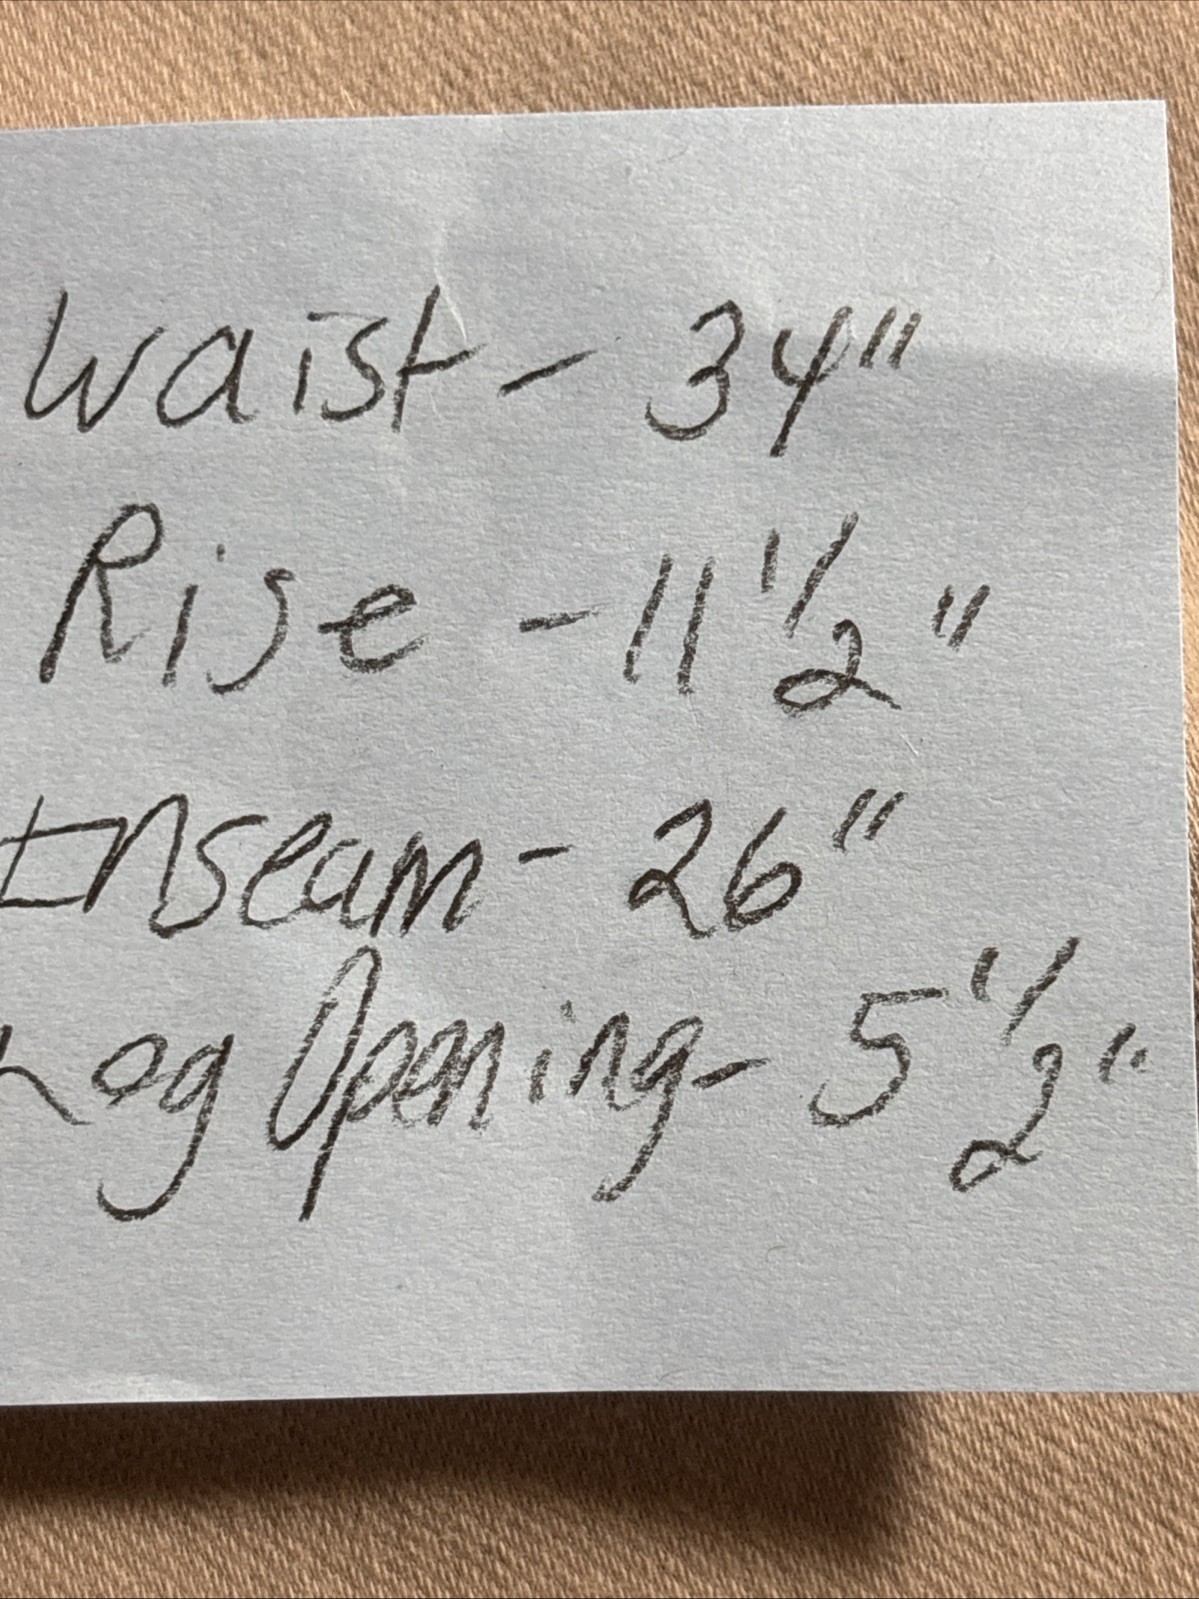 Waist - 34"
Rise - 11 1/2"
Inseam - 26"
Leg Opening - 5 1/2"